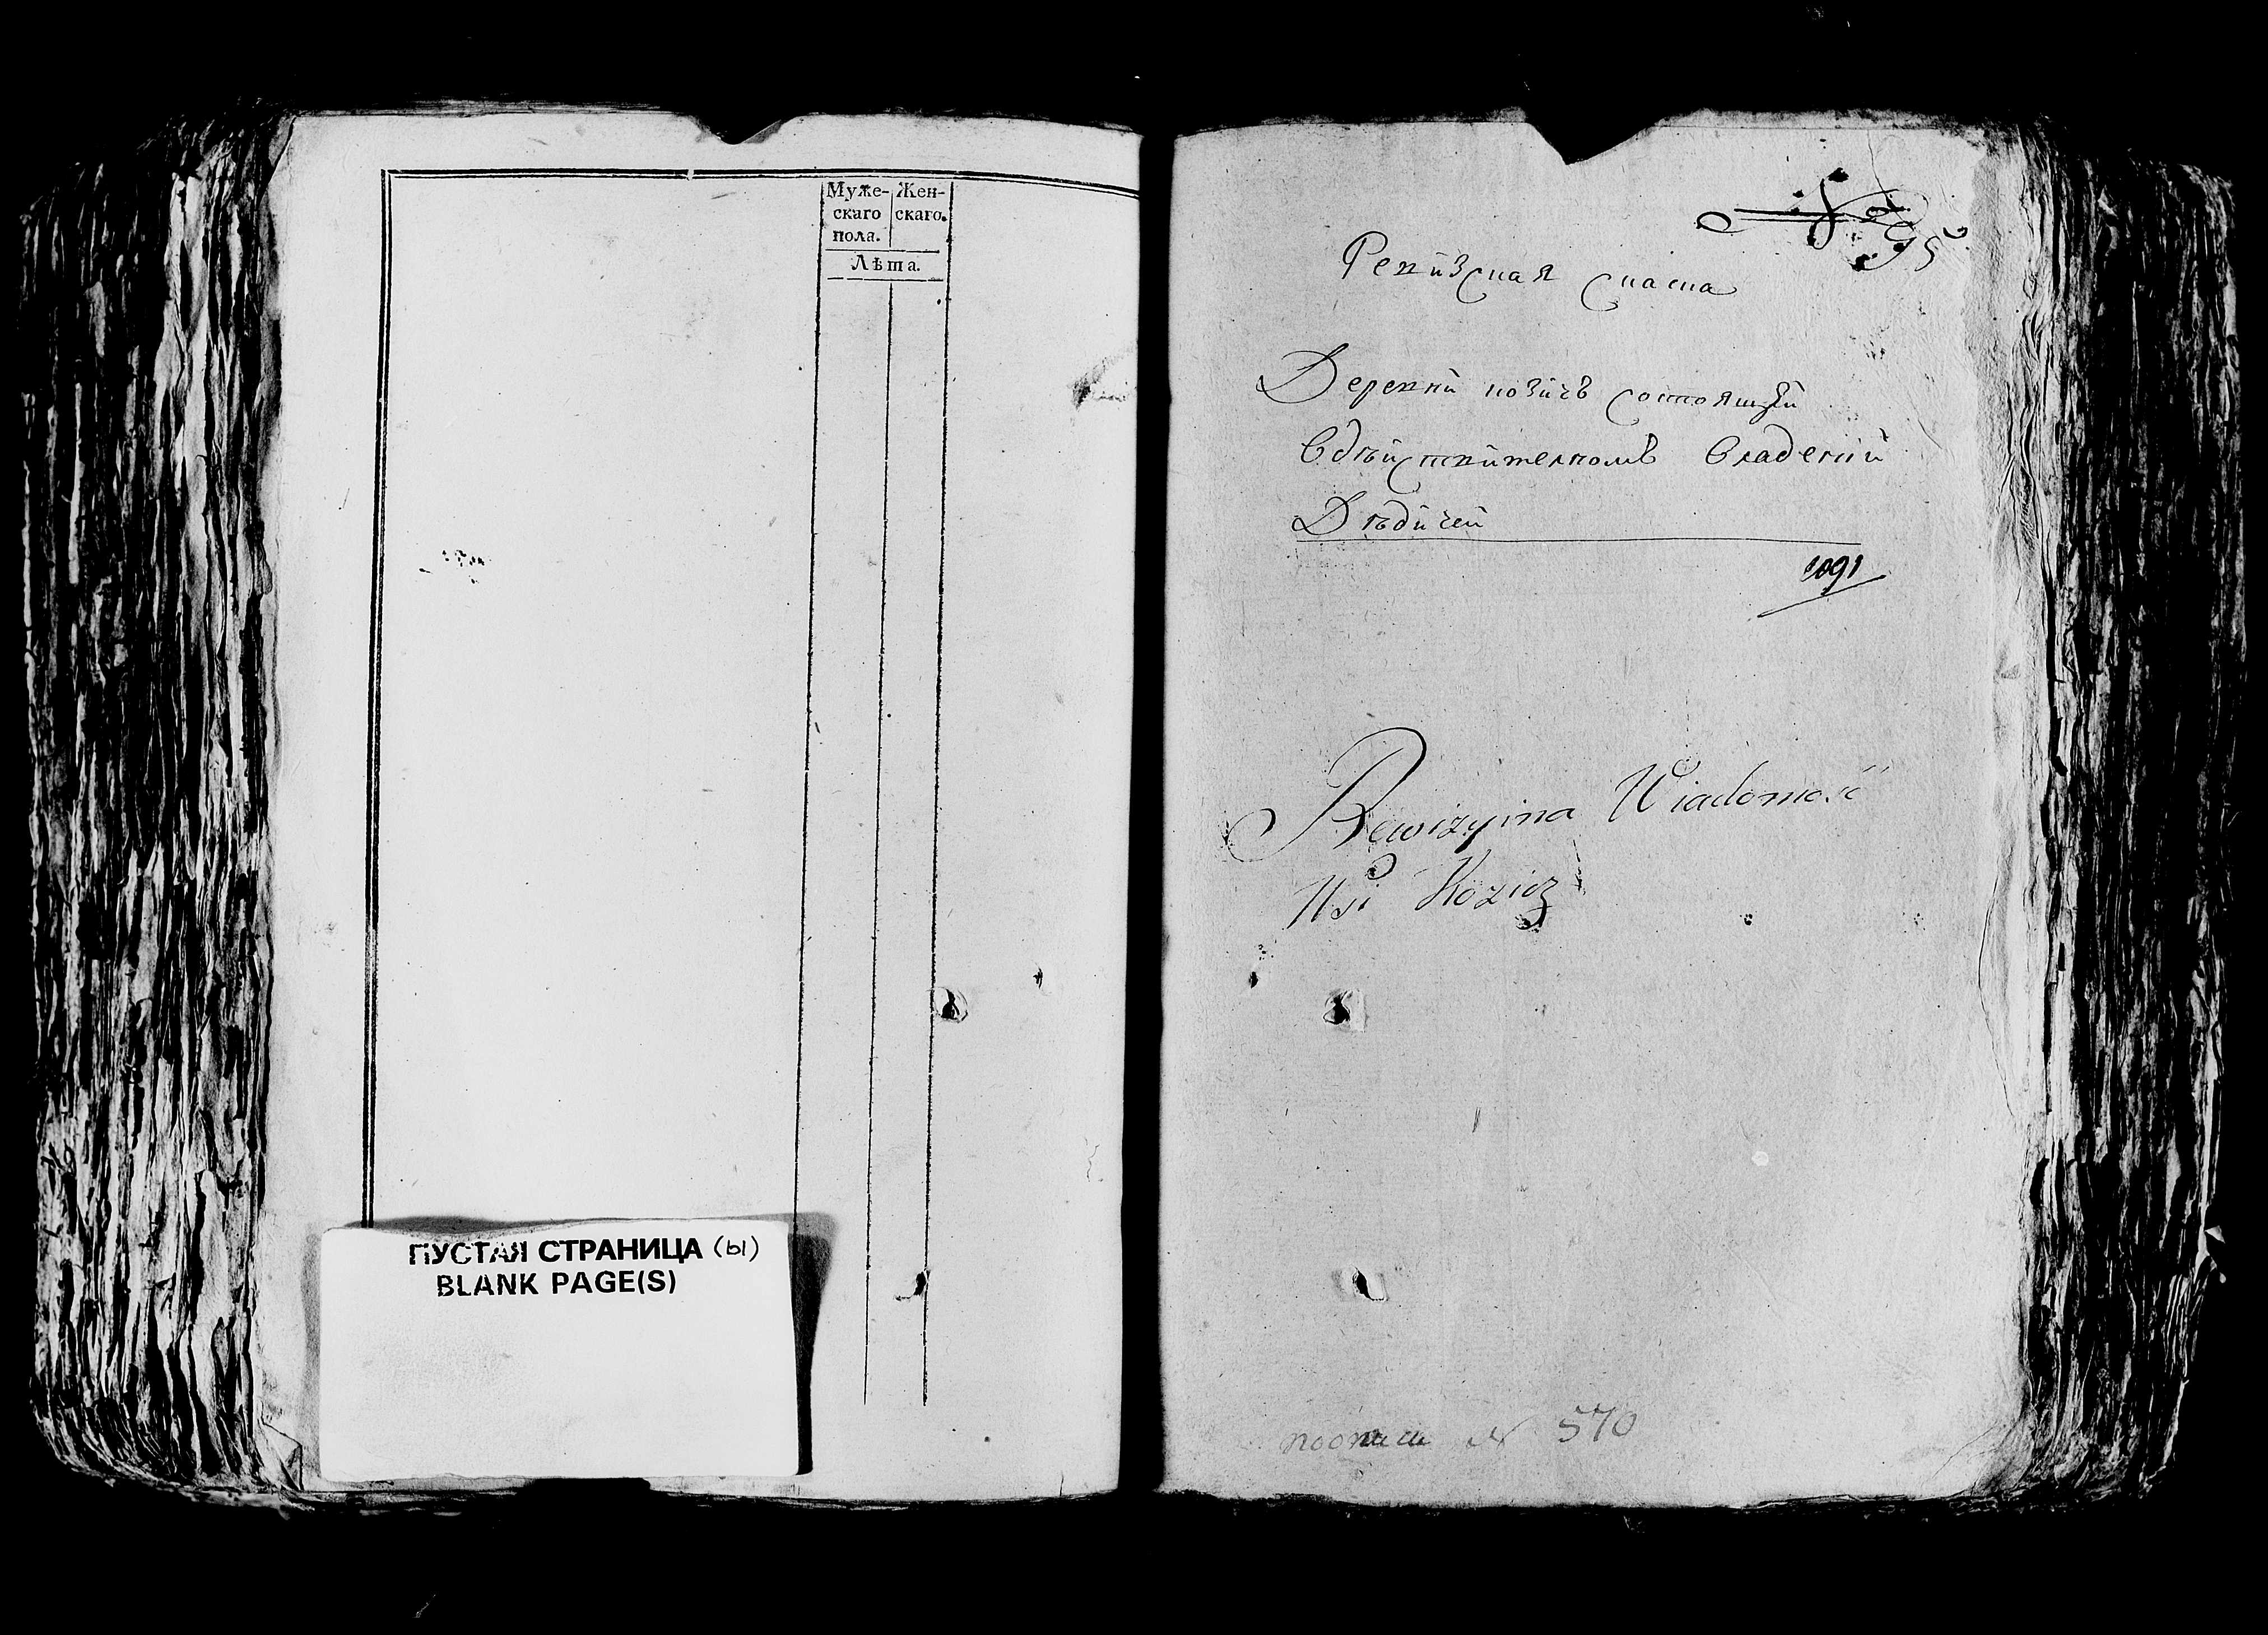 Муже-
скаго
пола.
Жен-
скаго.
Лѣта.
ПУСТАЯ СТРАНИЦА (ы)
BLANK PAGE(S)
95
Ревизская скаска
Деревни козичь состоящей
Вдѣйствителномъ Владении
Дѣдичей
1091
Rewizyina Wiadomość
Wsi Kozicz
поописи № 570